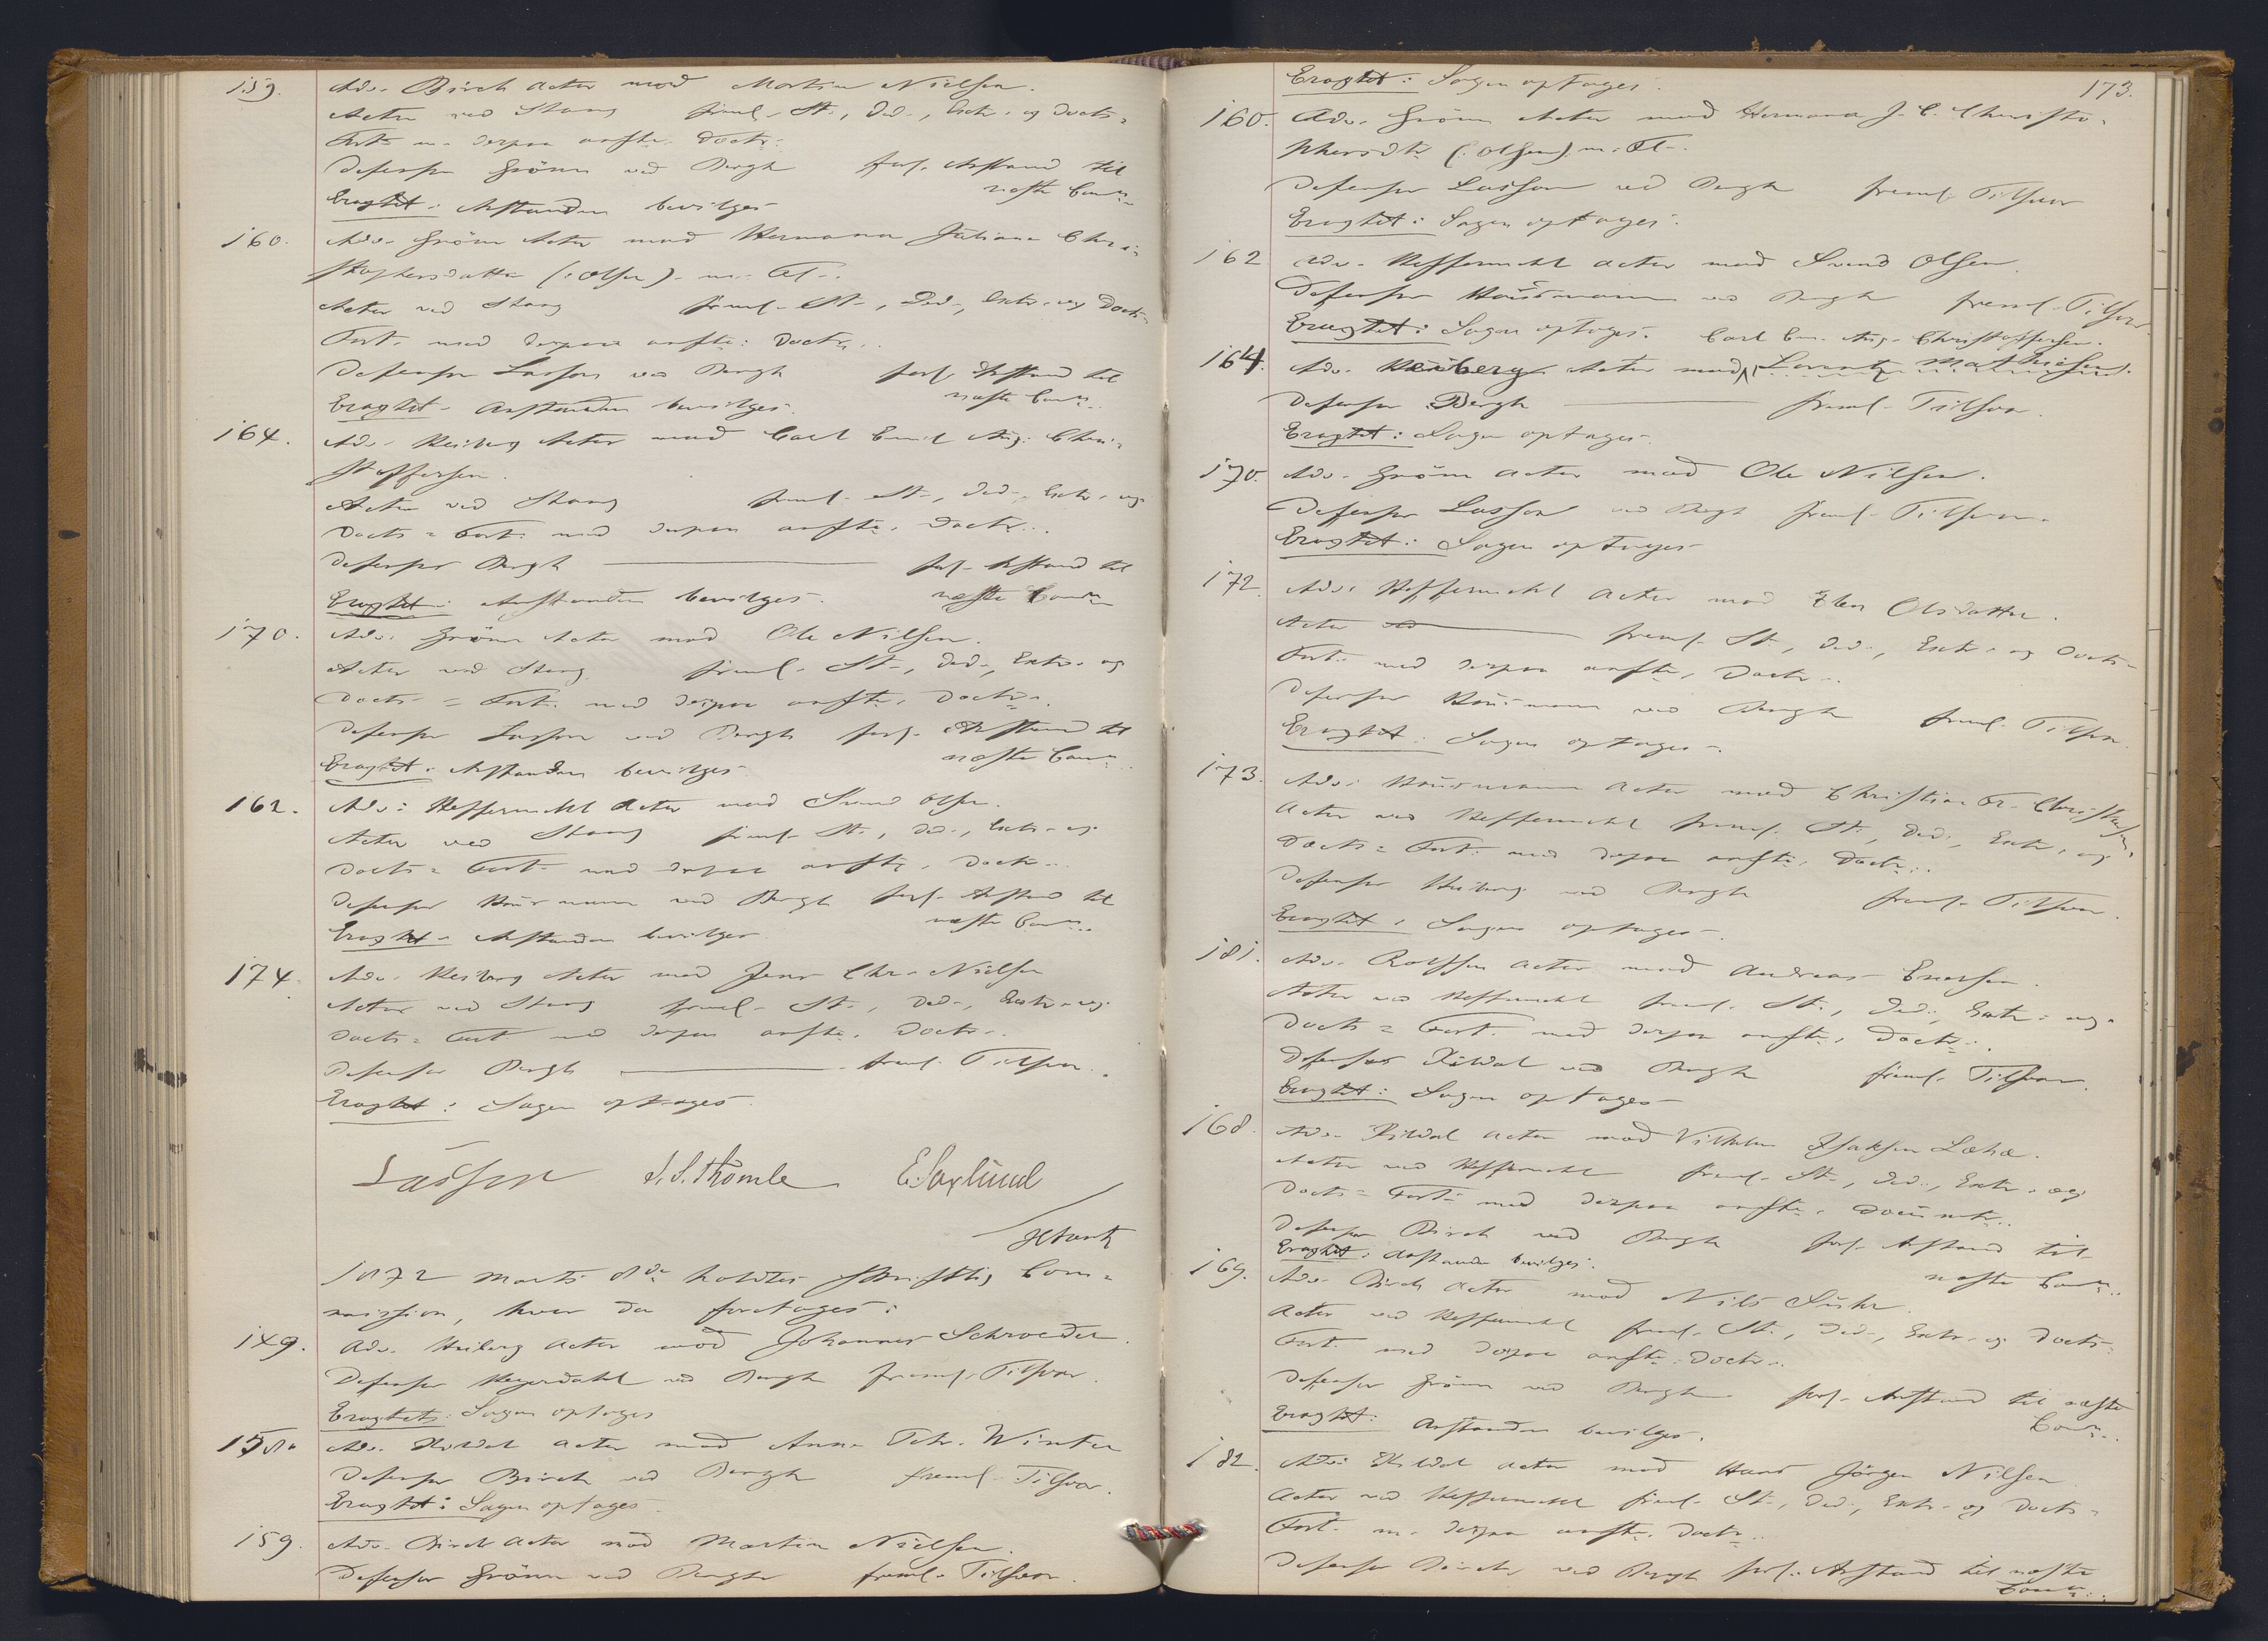 159. Adv. Birch Actor mod Martin Nielsen.
Actor ved Stang freml. St-, Ded-, Extr. og Docts=
Fort. m. derpaa anfte. Doctr.
Defensor Grönn ved Bergh forl. Anstand til
næste Comn.
Eragtet: Anstanden bevilges
160. Adv. Grönn Actor mod Hermana Juliane Chri=
stophersdatter (: Olsen) m. Fl.
Actor ved Stang freml. St-, Ded-, Extr. og Docts=
Fort. med derpaa anfte: Doctr.
Defensor Lasson ved Bergh forl. Anstand til
næste Comn.
Eragtet. Anstanden bevilges.
164. Adv. Heiberg Actor mod Carl Emil Aug: Chri=
stoffersen.
Actor ved Stang freml. St-, Ded-, Extr. og
Docts= Fort. med derpaa anfte. Doctr.
Defensor Bergh forl. Anstand til
næste Comn
Eragtet: Anstanden bevilges.
170. Adv. Grönn Actor mod Ole Nilsen.
Actor ved Stang freml. St-, Ded-, Extr. og
Docts= Fort. med derpaa anfte. Doctr.
Defensor Lasson ved Bergh forl. Anstand til
næste Comn.
Eragtet: Anstanden bevilges
162. Adv: Heffermehl Actor mod Svend Olsen.
Actor ved Stang freml. St., Ded-, Extr. og
Docts= Fort. med derpaa anfte, Doctr.
Defensor Hausmann ved Bergh forl. Anstand til
næste Comn.
Eragtet. Anstanden bevilges
174. Adv. Heiberg Actor mod Jens Chr. Nielsen
Actor ved Stang freml. St-, Ded-, Extr. og
Docts= Fort med derpaa anfte. Doctr.
Defensor Bergh freml. Tilsvar.
Eragtet: Sagen optages.
Lasson S. S. Thomle E. Saxlund
1872 Marts 8de holdtes skriftlig Com=
mission, hvor da foretages:
149. Adv. Heiberg Actor mod Johannes Schroeder.
Defensor Heyerdahl ved Bergh freml. Tilsvar.
Eragtet: Sagen optages
158. Adv. Kildal Actor mod Anne Winter
Defensor Birch ved Bergh freml. Tilsvar.
Eragtet: Sagen optages.
159. Adv. Birch Actor mod Martin Nielsen.
Defensor Grönn ved Bergh freml. Tilsvar.
173.
Eragtet: Sagen optages.
160. Adv. Grönn Actor mod Hermana J. C. Christo=
phersdtr (: Olsen). m. Fl.
Defensor Lasson ved Bergh freml. Tilsvar
Eragtet: Sagen optages.
162 Adv. Heffermehl Actor mod Svend Olsen.
Defensor Hausmann ved Bergh freml. Tilsvar.
Eragtet: Sagen optages. Carl Em. Aug. Christoffersen.
164. Adv. Heiberg Actor mod Lorentz Mathisen.
Defensor Bergh freml. Tilsvar.
Eragtet: Sagen optages.
170. Adv. Grönn Actor mod Ole Nilsen.
Defensor Lasson ved Bergh freml. Tilsvar.
Eragtet: Sagen optages
172. Adv. Heffermehl Actor mod Elen Olsdatter.
Actor ved freml. St-, Ded-, Extr. og Docts=
Fort. med derpaa anfte, Doctr.
Defensor Hausmann ved Bergh freml. Tilsvar.
Eragtet: Sagen optages.
173. Adv. Hausmann Actor mod Christian Fr.
Actor ved Heffermehl freml. St., Ded-, Extr. og
Docts= Fort. med derpaa anfte, Doctr.
Defensor Heiberg ved Bergh freml. Tilsvar.
Eragtet: Sagen optages.
181. Adv. Rolfsen Actor mod Andreas Enersen.
Actor ved Heffermehl freml. St., Ded., Extr. og
Docts= Fort. med derpaa anfte, Doctr.
Defensor Kildal ved Bergh freml. Tilsvar.
Eragtet: Sagen optages
168. Adv. Kildal Actor mod Vilhelm Isaksen
Actor ved Heffermehl freml. St-, Ded., Extr. og
Docts= Fort. med derpaa anfte.
Defensor Birch ved Bergh forl. Anstand til
næste Comn.
Eragtet: Anstanden bevilges.
169. Adv. Birch Actor mod Nils
Actor ved Heffermehl freml. St., Ded-, Extr. og Docts=
Fort. med derpaa anfte. Doctr.
Defensor Grönn ved Bergh forl. Anstand til næste
Comn.
Eragtet: Anstanden bevilges.
182. Adv: Kildal Actor mod Hans Jörgen Nilsen
Actor ved Heffermehl freml. St-, Ded-, Extr. og Docts=
Fort. m. derpaa anfte. Doctr.
Defensor Birch ved Bergh forl. Anstand til næste
Comn.